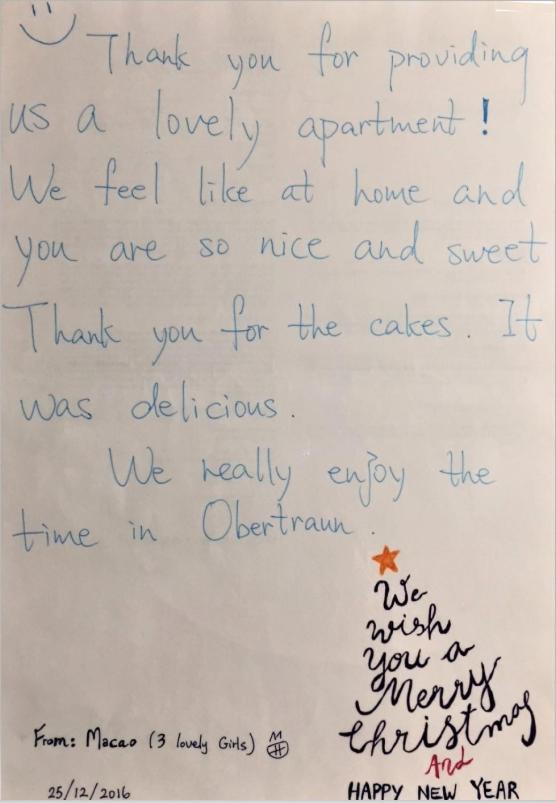 Thank you for providing
us a lovely apartment!
We feel like at home and
you are so nice and sweet
Thank you for the cakes. It
was delicious.
We really enjoy the
time in Obertraun.
We
wish
you a
Merry
Christmas
And
HAPPY NEW YEAR
From: Macao (3 lovely Girls)
25/12/2016